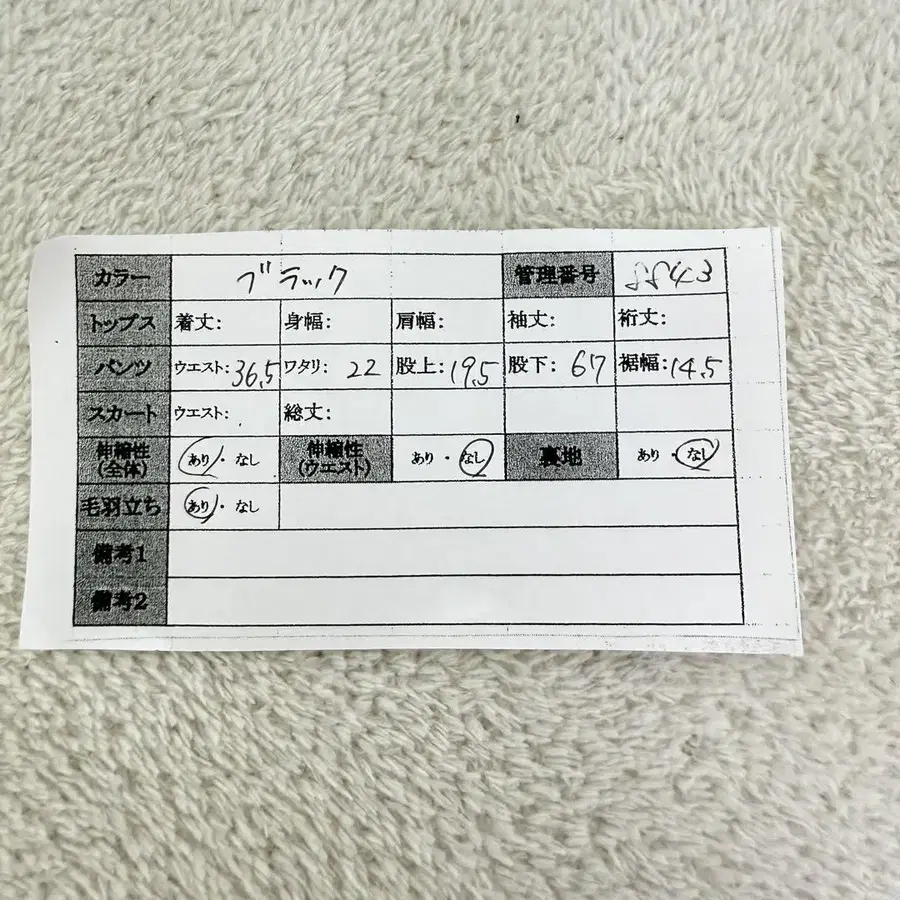 カラー ブラック 管理番号
トップス 着丈: 身幅: 肩幅: 袖丈: 裄丈:
パンツ ウエスト: 36,5 ワタリ: 22 股上: 19,5 股下: 67 裾幅: 14,5
スカート ウエスト: 総丈:
伸縮性(全体) あり・なし 伸縮性(ウエスト) あり・なし 裏地 あり・なし
毛羽立ち あり・なし
備考1
備考2